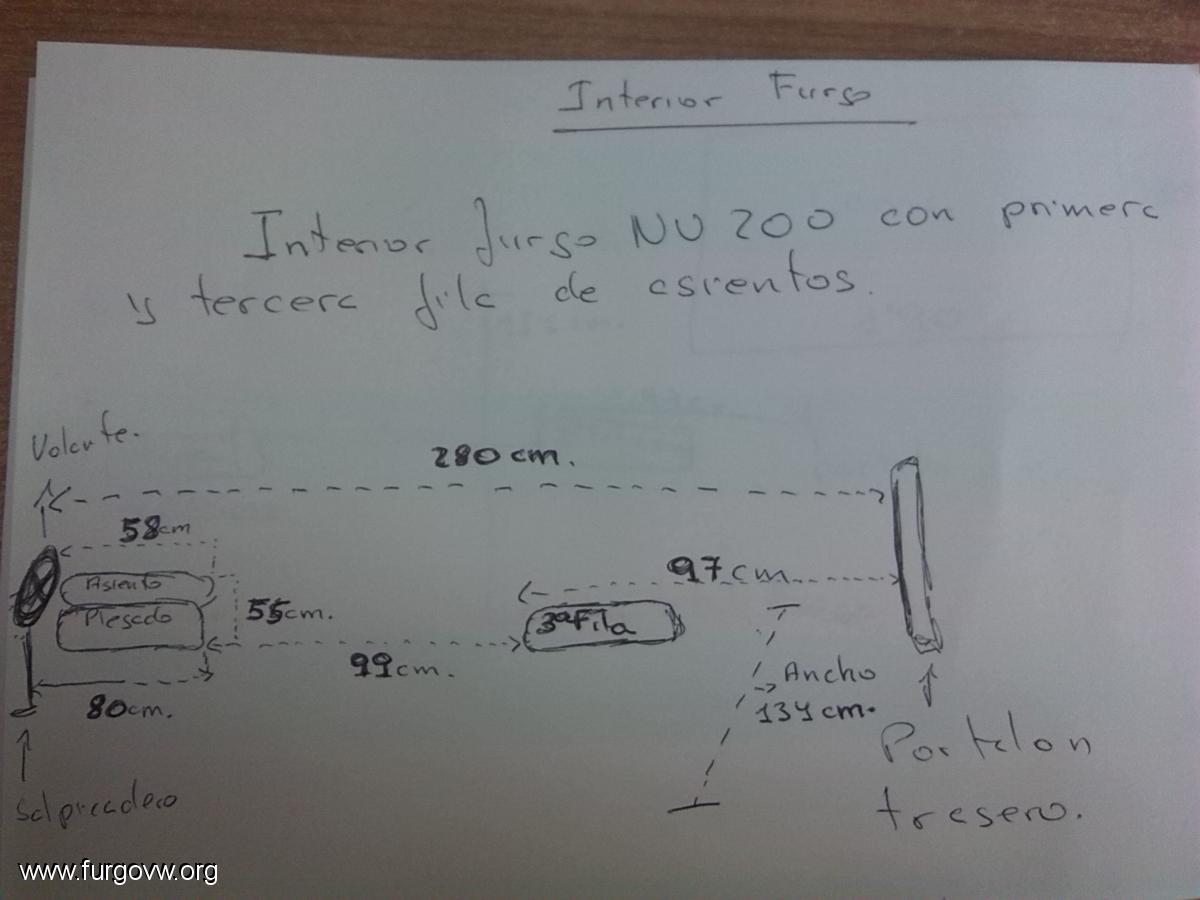 Interior Furgo
Interior furgo NV 200 con primera
y tercera fila de asientos.
Volante.
280 cm.
58cm
97cm
Asiento
Plegado
55cm.
3ª Fila
99cm.
Ancho
80cm.
Portalon
trasero.
Salpicadero
www.furgovw.org